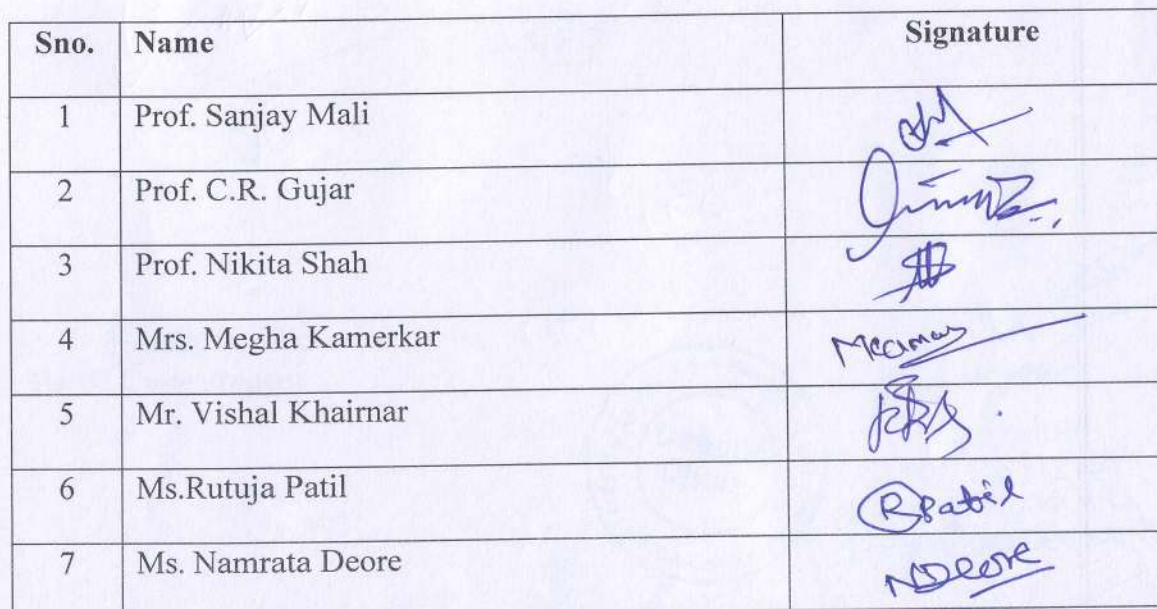 Sno. Name Signature
1 Prof. Sanjay Mali
2 Prof. C.R. Gujar
3 Prof. Nikita Shah
4 Mrs. Megha Kamerkar
5 Mr. Vishal Khairnar
6 Ms.Rutuja Patil RPatil
7 Ms. Namrata Deore NDeore